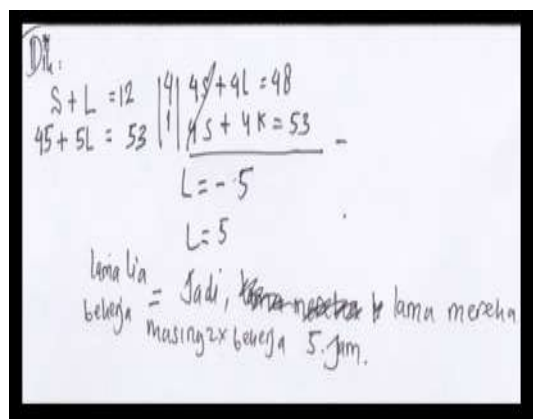 Dik:
S + L = 12 |4| 4S + 4L = 48
4S + 5L = 53 |1| 4S + 4K = 53 -
L = - 5
L = 5
lama Lia bekerja = Jadi, lama mereka
masing2x bekerja 5 jam.